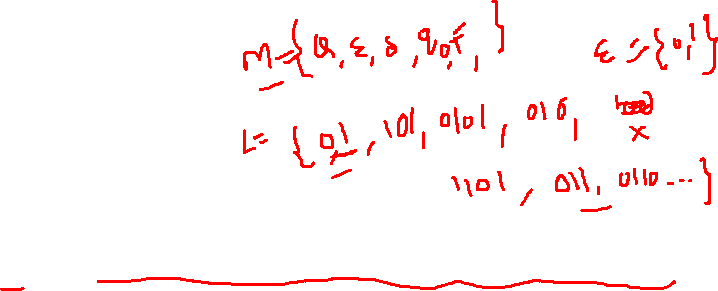 M = {Q, Σ, δ, q0, F, } Σ = {0, 1}
L = { 01, 101, 0101, 010,
x
1101, 011, 0110 ... }